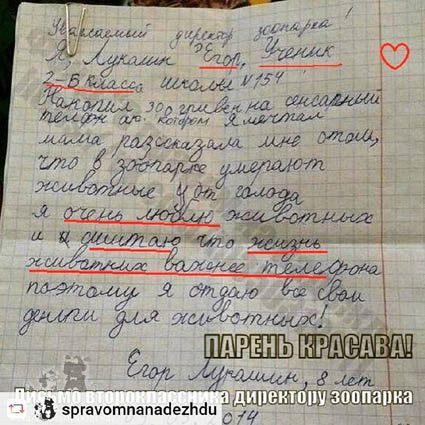 Уважаемый директор зоопарка!
Я, Лукашин Егор, Ученик
2-В класса школы №154
Накопил 300 гривен на сенсарный
телфон о котором я мечтал
мама рассказала мне отом,
что в зоопарке умерают
животные от голода
я очень люблю животных
и считаю что жизнь
животних важнее телефона
поэтому я отдаю все свои
деньги для животных!
ПАРЕНЬ КРАСАВА!
Егор Лукашин, 8 лет
Письмо второклассника директору зоопарка
spravomnanadezhdu